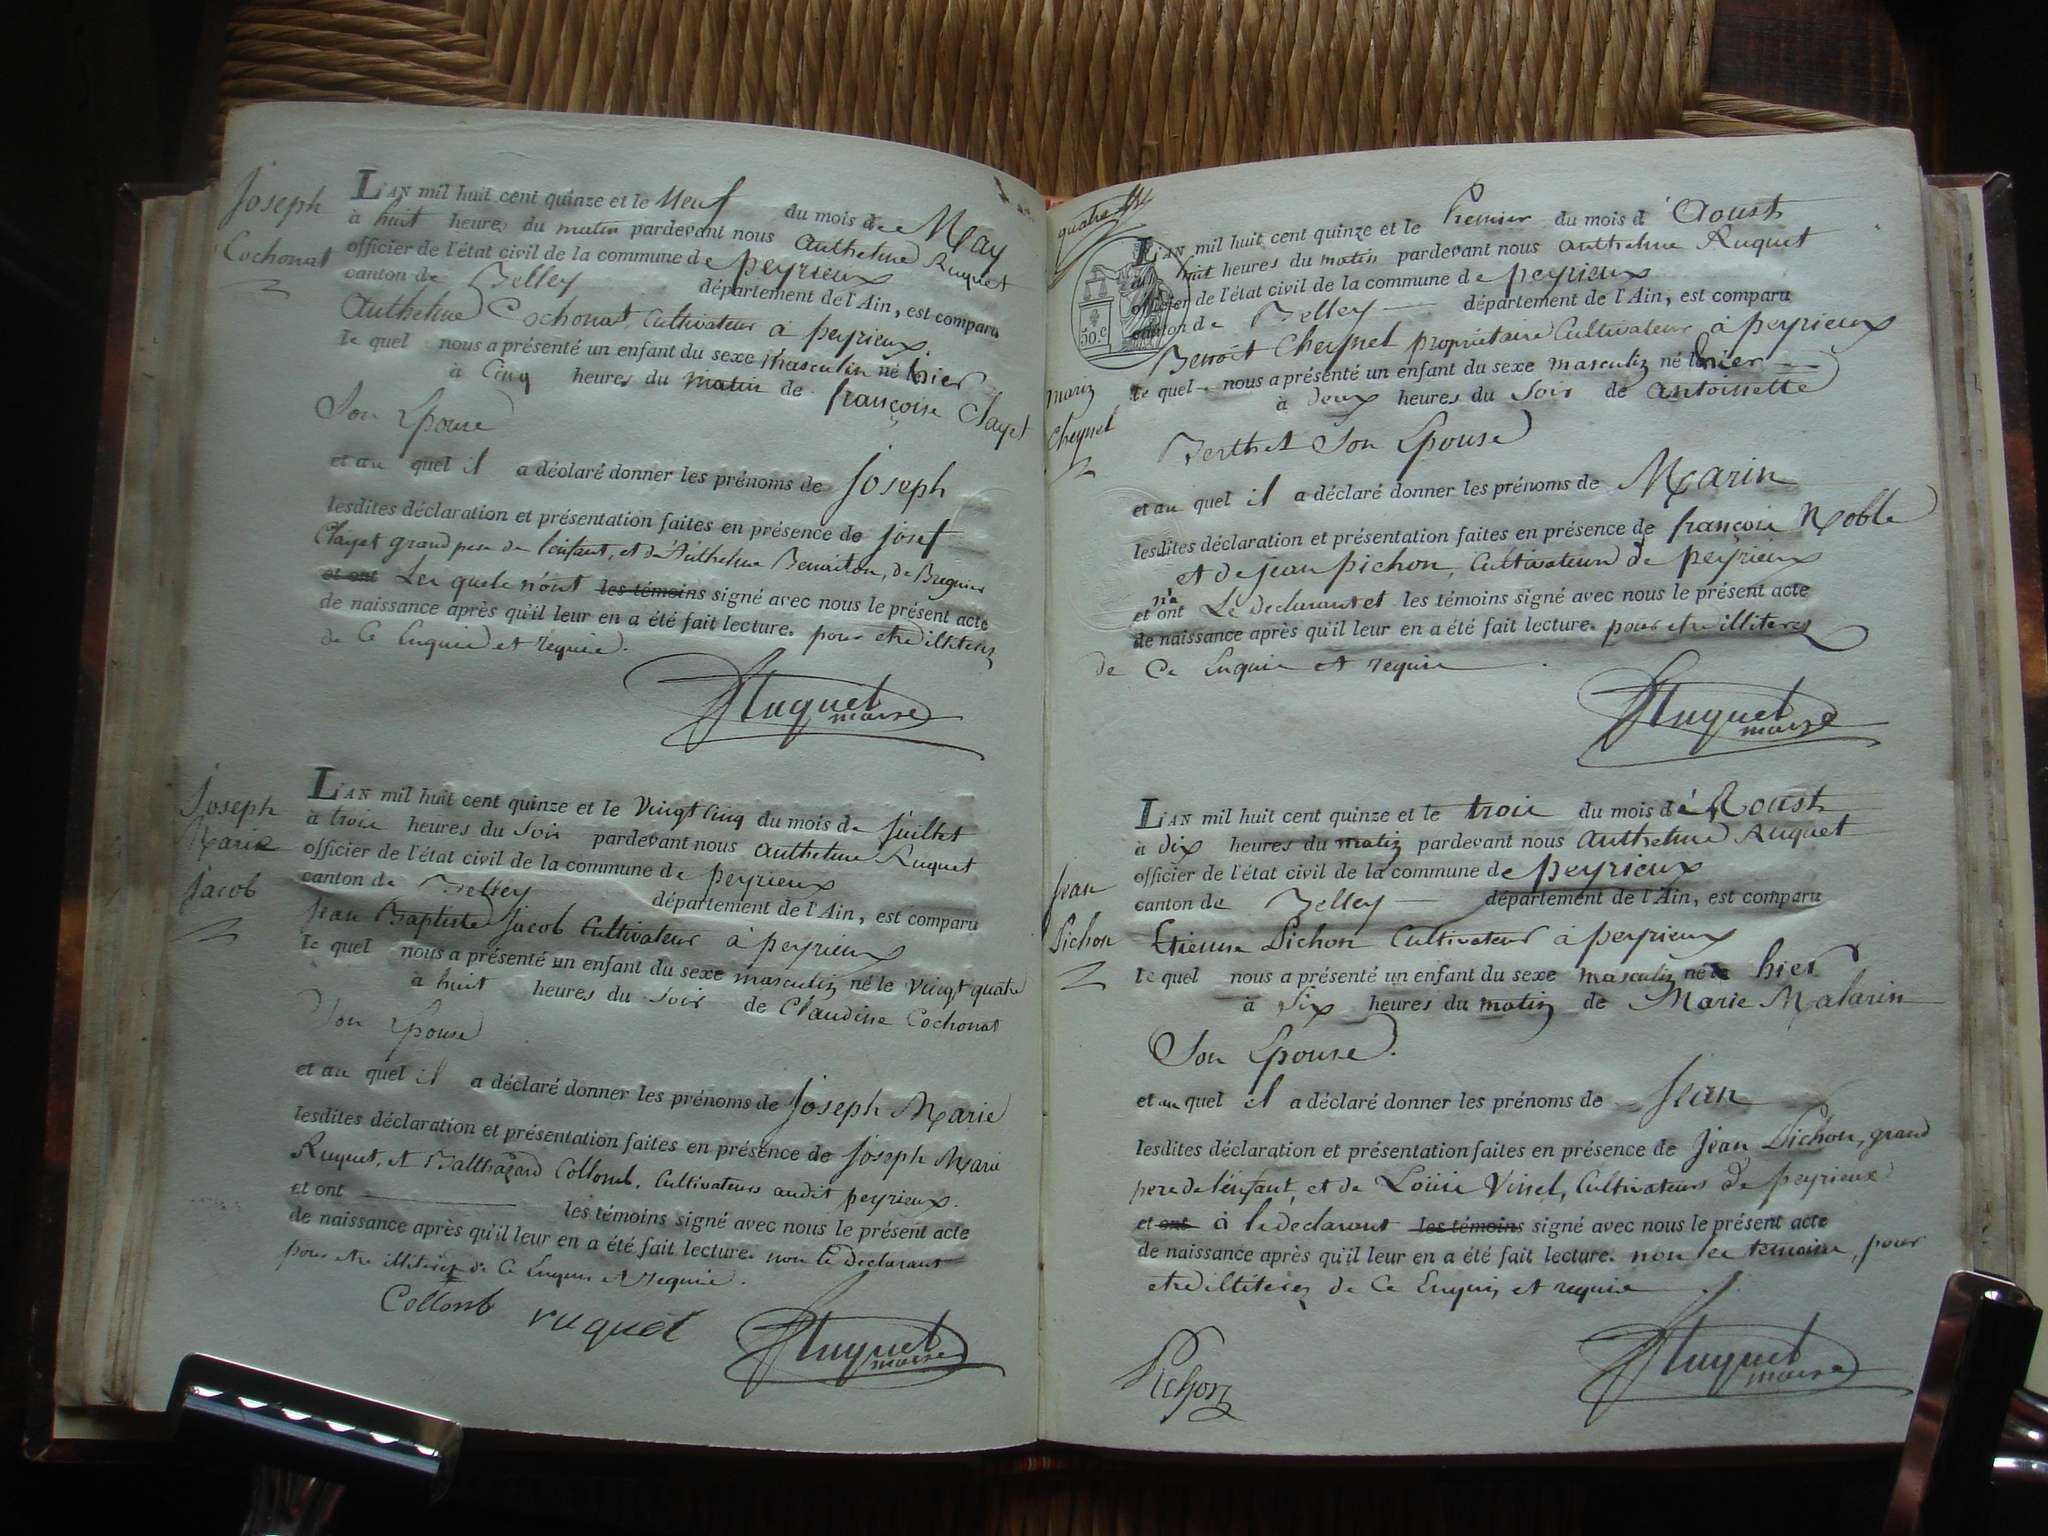 Joseph
Cochonat
L'AN mil huit cent quinze et le Neuf du mois de May
à huit heures du matin pardevant nous Anthelme Ruquet
officier de l'état civil de la commune de peyrieux
canton de Belley département de l'Ain, est comparu
Anthelme Cochonat, Cultivateur à peyrieux.
le quel nous a présenté un enfant du sexe masculin né hier
à Cinq heures du matin de françoise Clayet
Son Epouse
et au quel il a déclaré donner les prénoms de Joseph
lesdites déclaration et présentation faites en présence de josef
Clayet grand pere de l'enfant, et de Anthelme Benoiton, de Bregnier
et ont Les quels n'ont les témoins signé avec nous le présent acte
de naissance après qu'il leur en a été fait lecture. pour etre illiteres
de Ce Enquis et requis.
Ruquet
maire
Joseph
Marie
Jacob
L'AN mil huit cent quinze et le vingt cinq du mois de juillet
à trois heures du soir pardevant nous Anthelme Ruquet
officier de l'état civil de la commune de peyrieux
canton de Belley département de l'Ain, est comparu
Jean Baptiste Jacob Cultivateur à peyrieux
le quel nous a présenté un enfant du sexe masculin né le vingt quatre
à huit heures du soir de Claudine Cochonat
Son Epouse
et au quel il a déclaré donner les prénoms de Joseph Marie
lesdites déclaration et présentation faites en présence de Joseph Marie
Ruquet, et Balthazard Collomb, Cultivateurs audit peyrieux.
et ont les témoins signé avec nous le présent acte
de naissance après qu'il leur en a été fait lecture. non le declarant
pour etre illiteres de Ce Enquis et requis.
Collomb ruquet Ruquet
maire
50.c
marin
Cheynel
L'AN mil huit cent quinze et le Premier du mois d'Aoust
à huit heures du matin pardevant nous Anthelme Ruquet
officier de l'état civil de la commune de peyrieux
canton de Belley département de l'Ain, est comparu
Benoit Cheynel propriétaire Cultivateur à peyrieux
le quel nous a présenté un enfant du sexe masculin né hier
à Deux heures du Soir de antoinette
Berthet Son Epouse
et au quel il a déclaré donner les prénoms de Marin
lesdites déclaration et présentation faites en présence de françois Noble
et de jean pichon, Cultivateurs de peyrieux
et n'ont Le declarant et les témoins signé avec nous le présent acte
de naissance après qu'il leur en a été fait lecture. pour etre illiteres
de Ce Enquis et requis
Ruquet
maire
Jean
Pichon
L'AN mil huit cent quinze et le trois du mois d'Aoust
à dix heures du matin pardevant nous Anthelme Ruquet
officier de l'état civil de la commune de peyrieux
canton de Belley département de l'Ain, est comparu
Etienne Pichon Cultivateur à peyrieux
le quel nous a présenté un enfant du sexe masculin né hier
à Six heures du matin de Marie Malarin
Son Epouse.
et au quel il a déclaré donner les prénoms de Jean
lesdites déclaration et présentation faites en présence de Jean Pichon, grand
pere de l'enfant, et de Louis Vinel, Cultivateurs de peyrieux
et ont à le declarant les témoins signé avec nous le présent acte
de naissance après qu'il leur en a été fait lecture. non les temoins, pour
etre illiteres de Ce Enquis et requis
Pichon Ruquet
maire